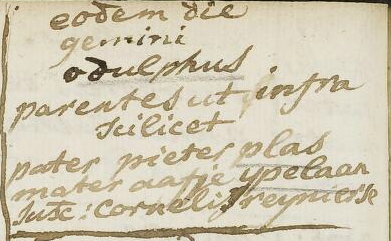 eodem die
gemini
odulphus
parentes ut infra
scilicet
pater pieter plas
mater aafje ypelaan
susc: Cornelis reynierse